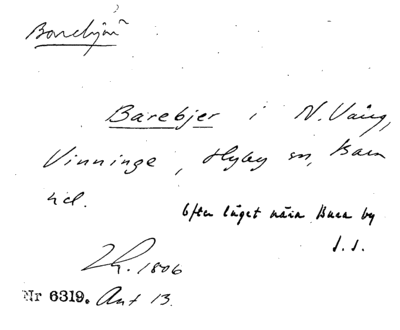 Barebjer i N. Vång,
Vinninge, Hyby sn, Bara
hd.
Efter läget nära Bara by
J. J.
Lh. 1806
Nr 6319. Akt 13.